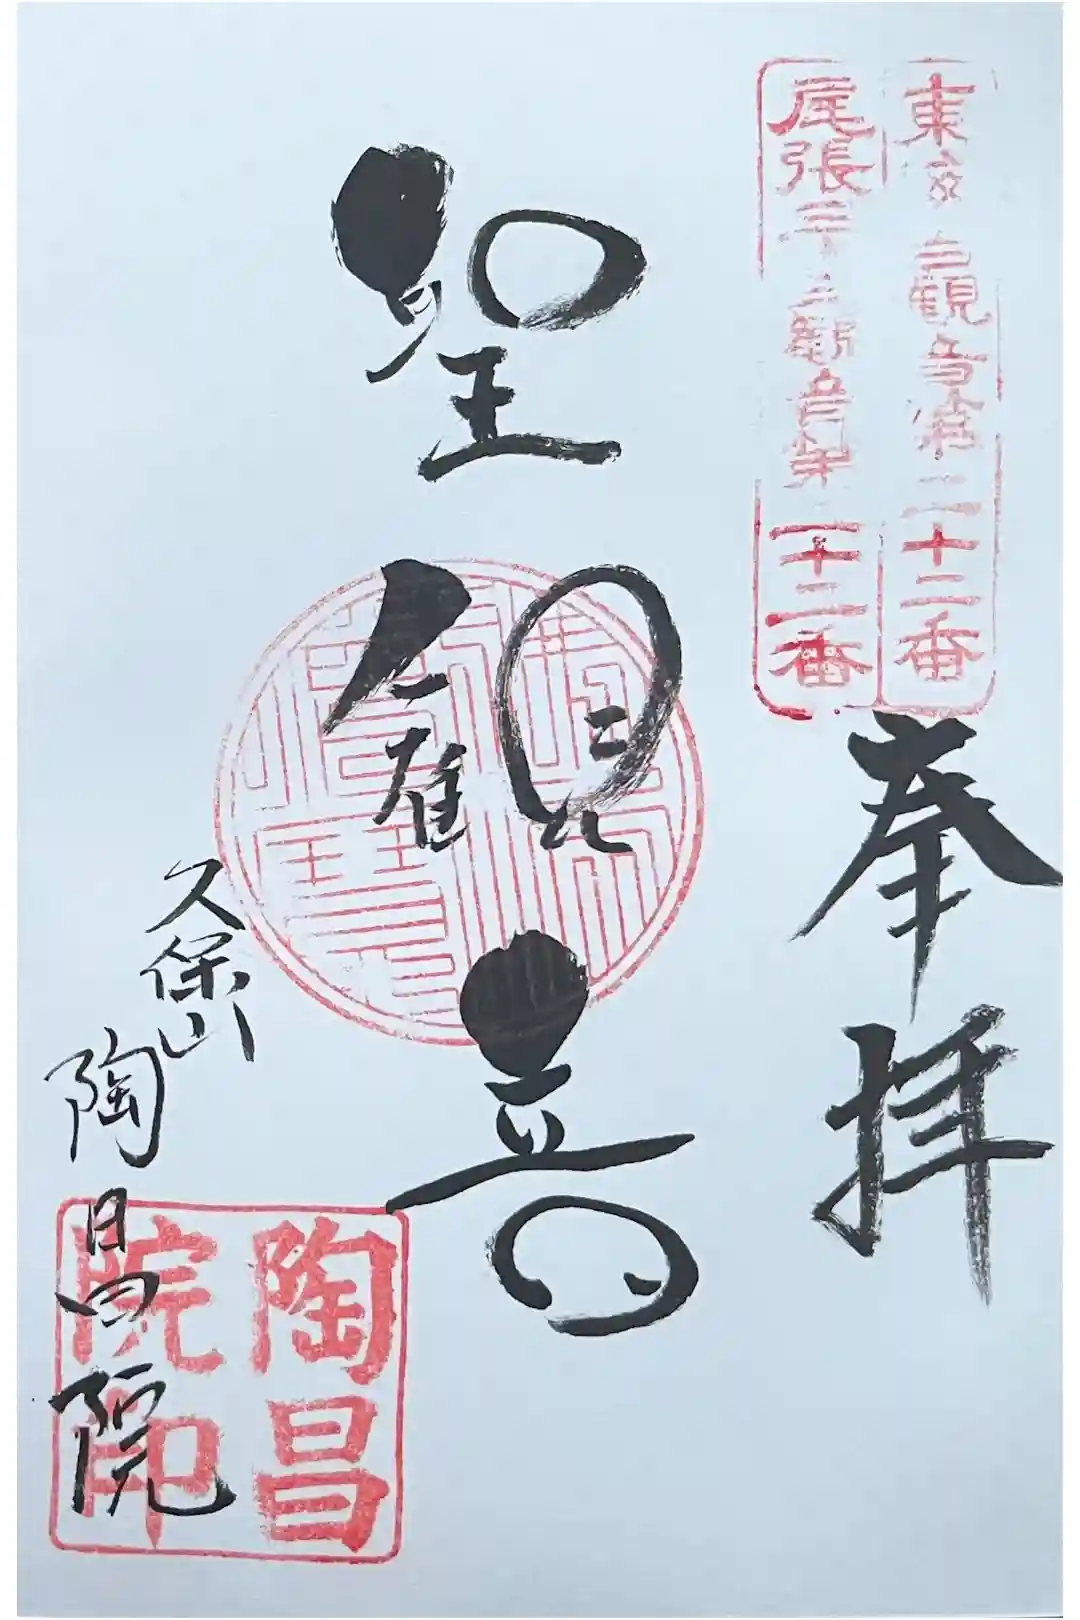 東海百観音第二十二番
尾張三十三観音第二十二番
奉拝
聖観音
久保山
陶昌院
陶昌
院印